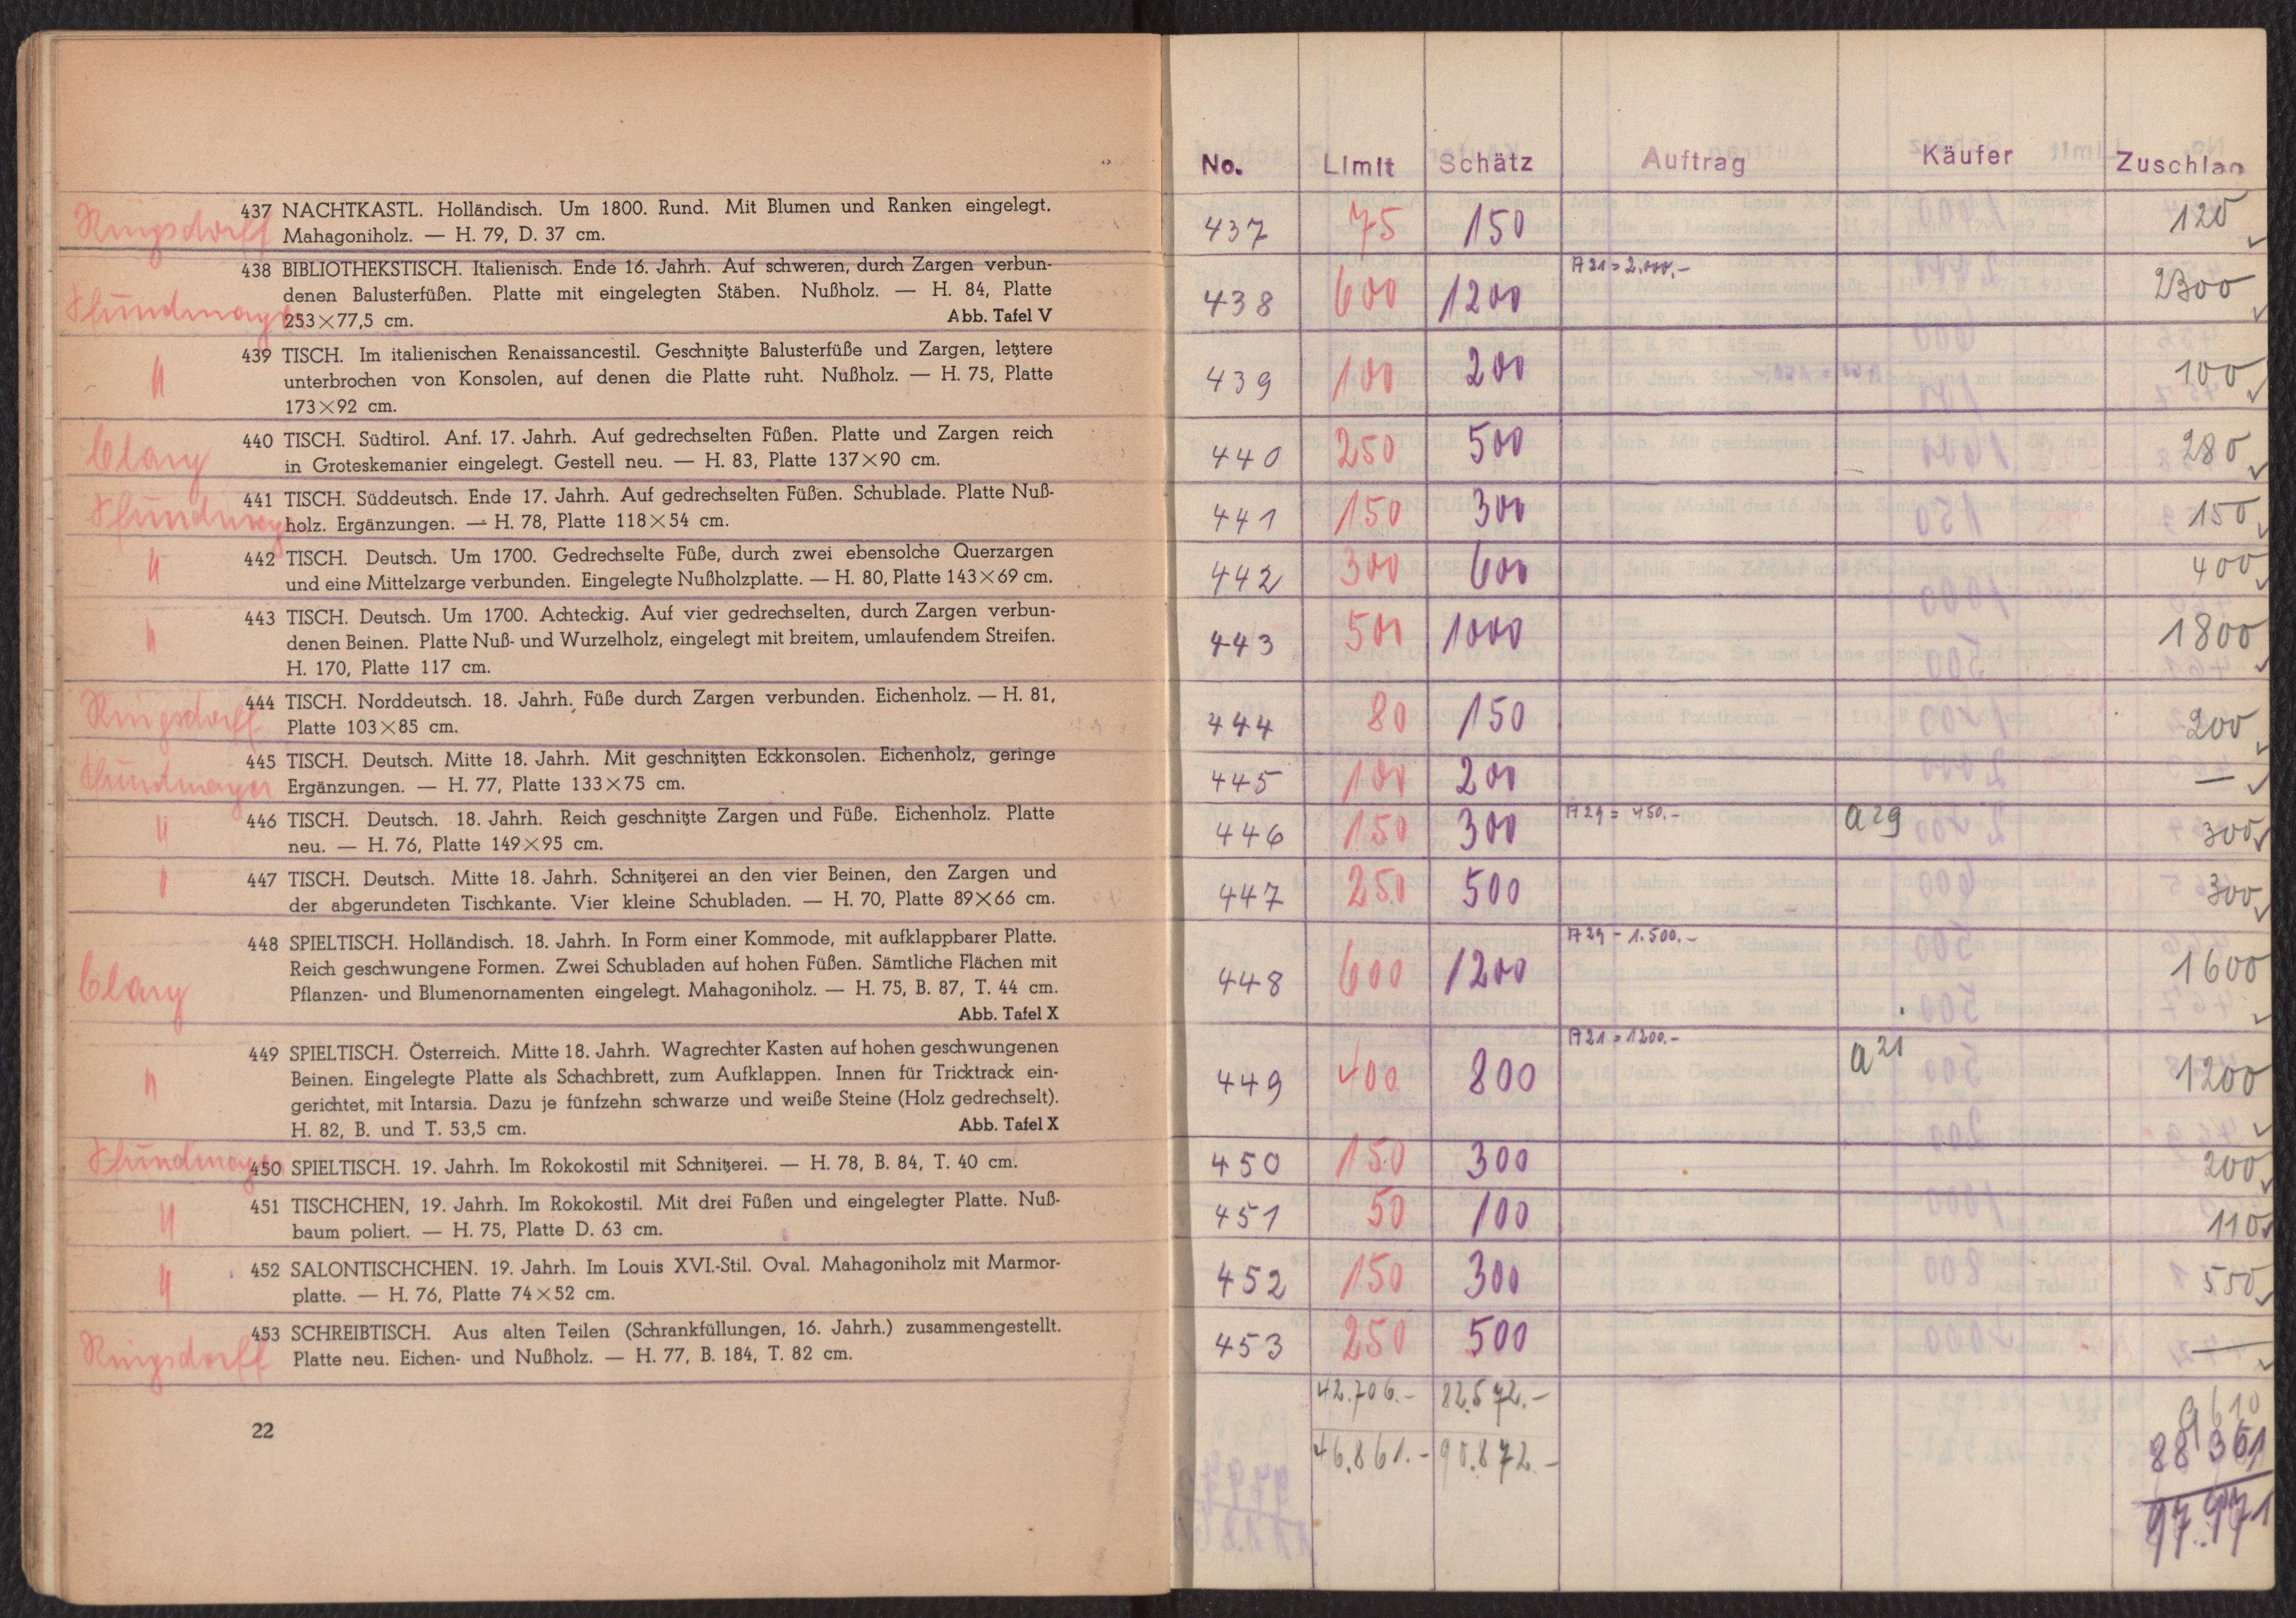 Ringsdorff
437 NACHTKASTL. Holländisch. Um 1800. Rund. Mit Blumen und Ranken eingelegt.
Mahagoniholz. — H. 79, D. 37 cm.
438 BIBLIOTHEKSTISCH. Italienisch. Ende 16. Jahrh. Auf schweren, durch Zargen verbun-
denen Balusterfüßen. Platte mit eingelegten Stäben. Nußholz. — H. 84, Platte
Hundmayer
253×77,5 cm. Abb. Tafel V
439 TISCH. Im italienischen Renaissancestil. Geschnitzte Balusterfüße und Zargen, letztere
" unterbrochen von Konsolen, auf denen die Platte ruht. Nußholz. — H. 75, Platte
173×92 cm.
440 TISCH. Südtirol. Anf. 17. Jahrh. Auf gedrechselten Füßen. Platte und Zargen reich
Clary
in Groteskemanier eingelegt. Gestell neu. — H. 83, Platte 137×90 cm.
441 TISCH. Süddeutsch. Ende 17. Jahrh. Auf gedrechselten Füßen. Schublade. Platte Nuß-
Hundmayer
holz. Ergänzungen. — H. 78, Platte 118×54 cm.
" 442 TISCH. Deutsch. Um 1700. Gedrechselte Füße, durch zwei ebensolche Querzargen
und eine Mittelzarge verbunden. Eingelegte Nußholzplatte. — H. 80, Platte 143×69 cm.
443 TISCH. Deutsch. Um 1700. Achteckig. Auf vier gedrechselten, durch Zargen verbun-
" denen Beinen. Platte Nuß- und Wurzelholz, eingelegt mit breitem, umlaufendem Streifen.
H. 170, Platte 117 cm.
Ringsdorff
444 TISCH. Norddeutsch. 18. Jahrh. Füße durch Zargen verbunden. Eichenholz. — H. 81,
Platte 103×85 cm.
Hundmayer
445 TISCH. Deutsch. Mitte 18. Jahrh. Mit geschnitzten Eckkonsolen. Eichenholz, geringe
Ergänzungen. — H. 77, Platte 133×75 cm.
" 446 TISCH. Deutsch. 18. Jahrh. Reich geschnitzte Zargen und Füße. Eichenholz. Platte
neu. — H. 76, Platte 149×95 cm.
" 447 TISCH. Deutsch. Mitte 18. Jahrh. Schnitzerei an den vier Beinen, den Zargen und
der abgerundeten Tischkante. Vier kleine Schubladen. — H. 70, Platte 89×66 cm.
448 SPIELTISCH. Holländisch. 18. Jahrh. In Form einer Kommode, mit aufklappbarer Platte.
Reich geschwungene Formen. Zwei Schubladen auf hohen Füßen. Sämtliche Flächen mit
Clary
Pflanzen- und Blumenornamenten eingelegt. Mahagoniholz. — H. 75, B. 87, T. 44 cm.
Abb. Tafel X
449 SPIELTISCH. Österreich. Mitte 18. Jahrh. Wagrechter Kasten auf hohen geschwungenen
" Beinen. Eingelegte Platte als Schachbrett, zum Aufklappen. Innen für Tricktrack ein-
gerichtet, mit Intarsia. Dazu je fünfzehn schwarze und weiße Steine (Holz gedrechselt).
H. 82, B. und T. 53,5 cm. Abb. Tafel X
Hundmayer
450 SPIELTISCH. 19. Jahrh. Im Rokokostil mit Schnitzerei. — H. 78, B. 84, T. 40 cm.
" 451 TISCHCHEN, 19. Jahrh. Im Rokokostil. Mit drei Füßen und eingelegter Platte. Nuß-
baum poliert. — H. 75, Platte D. 63 cm.
" 452 SALONTISCHCHEN. 19. Jahrh. Im Louis XVI.-Stil. Oval. Mahagoniholz mit Marmor-
platte. — H. 76, Platte 74×52 cm.
Ringsdorff
453 SCHREIBTISCH. Aus alten Teilen (Schrankfüllungen, 16. Jahrh.) zusammengestellt.
Platte neu. Eichen- und Nußholz. — H. 77, B. 184, T. 82 cm.
22
No. Limit Schätz Auftrag Käufer Zuschlag
437 75 150 120
438 600 1200 A21 = 2.000.- 2300
439 100 200 100
440 250 500 280
441 150 300 150
442 300 600 400
443 500 1000 1800
444 80 150 200
445 100 200 —
446 150 300 A29 = 450.- a 29 300
447 250 500 300
448 600 1200 A29 - 1.500.- 1600
449 400 800 A21 = 1200.- a 21 1200
450 150 300 200
451 50 100 110
452 150 300 550
453 250 500 —
42.706.- 82.572.- 9610
46.861.- 90.872.- 88 361
97.971